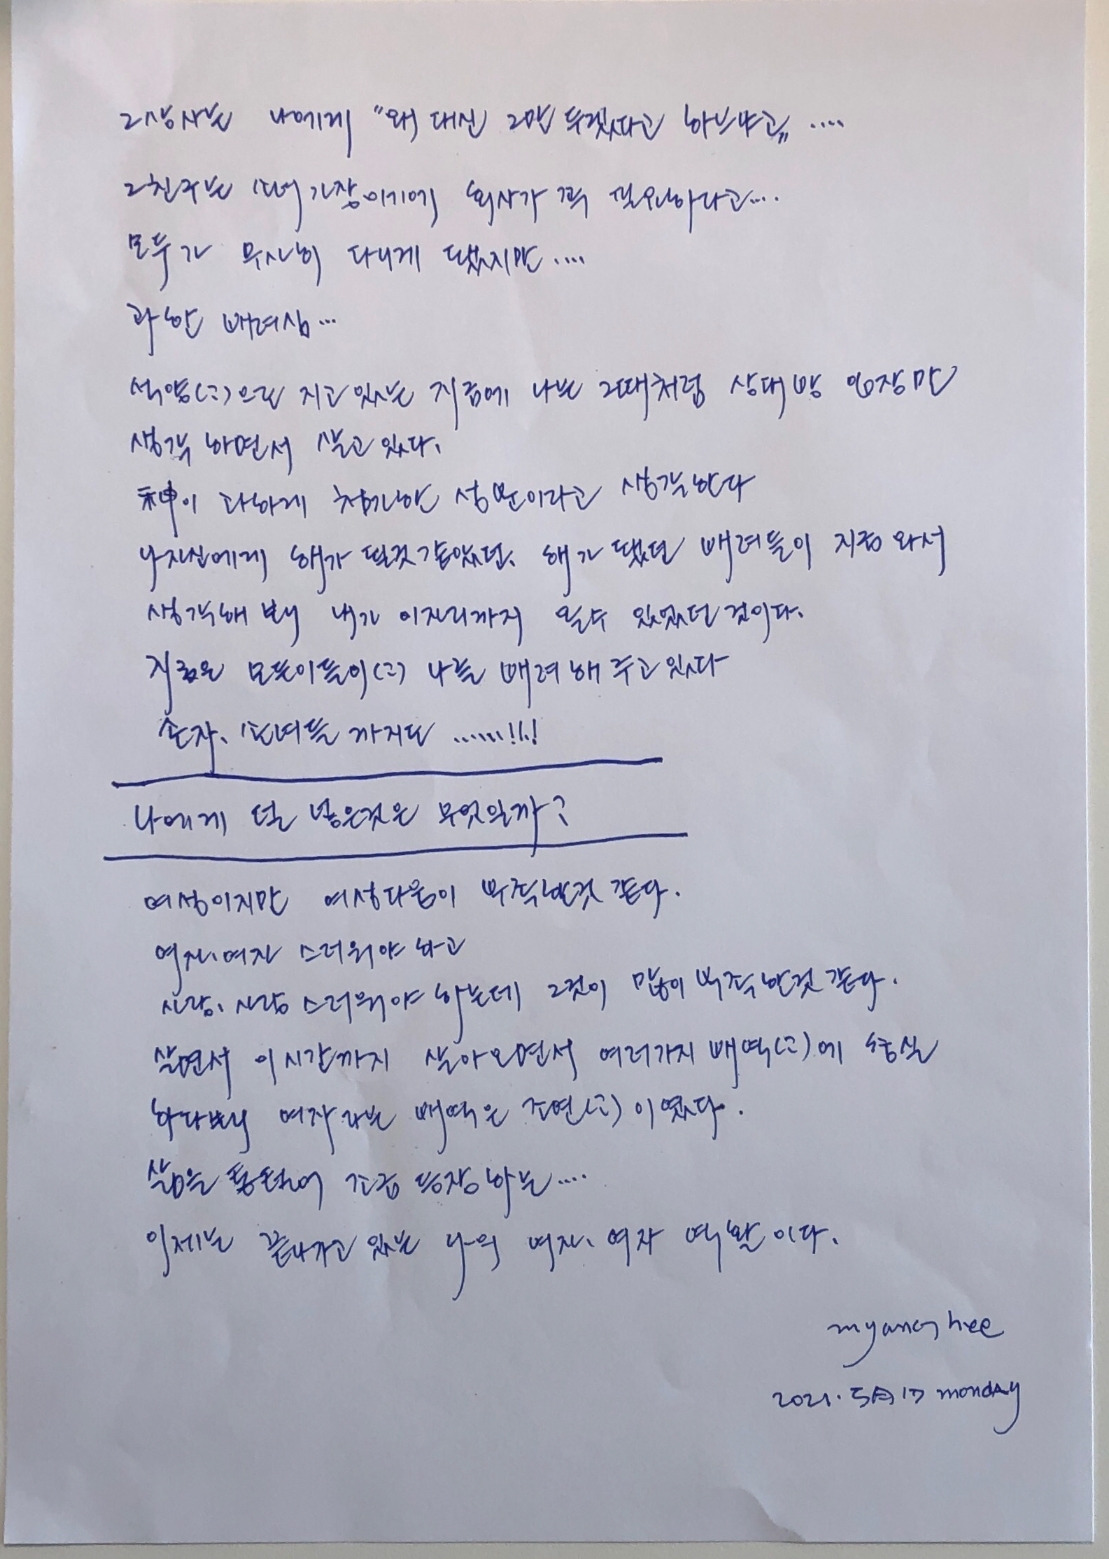 그상사는 나에게 "왜 대신 그만 두겠다고 하느냐고" ....
그친구는 소녀가장이기에 회사가 꼭 필요하다고....
모두가 무사히 다니게 됐지만....
과한 배려심...
석양(그)으로 지고 있는 지금에 나는 그때처럼 상대방 입장만
생각 하면서 살고 있다.
神이 과하게 첨가한 성분이라고 생각한다
나자신에게 해가 될것 같았던. 해가 됐던 배려들이 지금 와서
생각해 보니 내가 이자리까지 올수 있었던 것이다.
지금은 모든이들이(그) 나를 배려해 주고 있다
손자, 손녀들 까지도 ......!!!
나에게 덜 넣은것은 무엇일까?
여성이지만 여성다움이 부족한것 같다.
여자.여자 스러워야 하고
사랑.사랑 스러워야 하는데 그것이 많이 부족한것 같다.
살면서 이시간까지 살아오면서 여러가지 배역(그)에 충실
하다보니 여자라는 배역은 조연(그)이였다.
삶을 통틀어 조금 등장하는....
이제는 끝나가고 있는 나의 여자.여자 역활이다.
myanghee
2021. 5月 17 monday